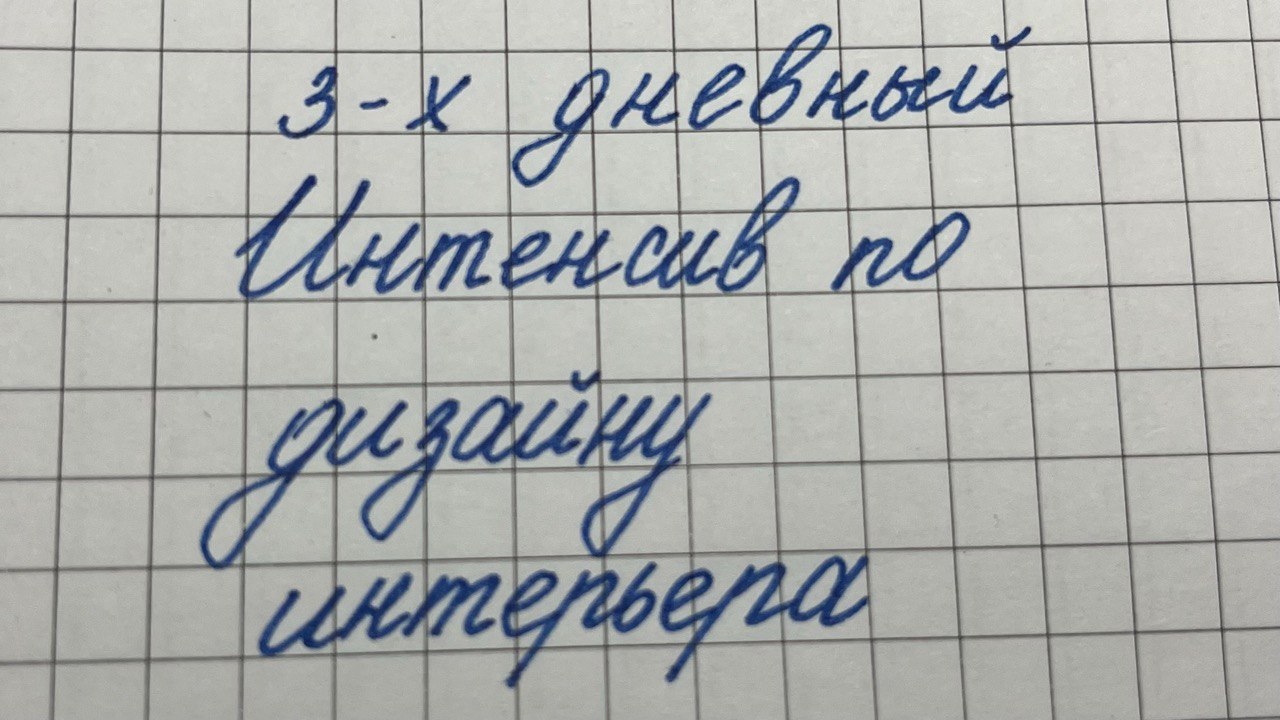 3-х дневный
Интенсив по
дизайну
интерьера